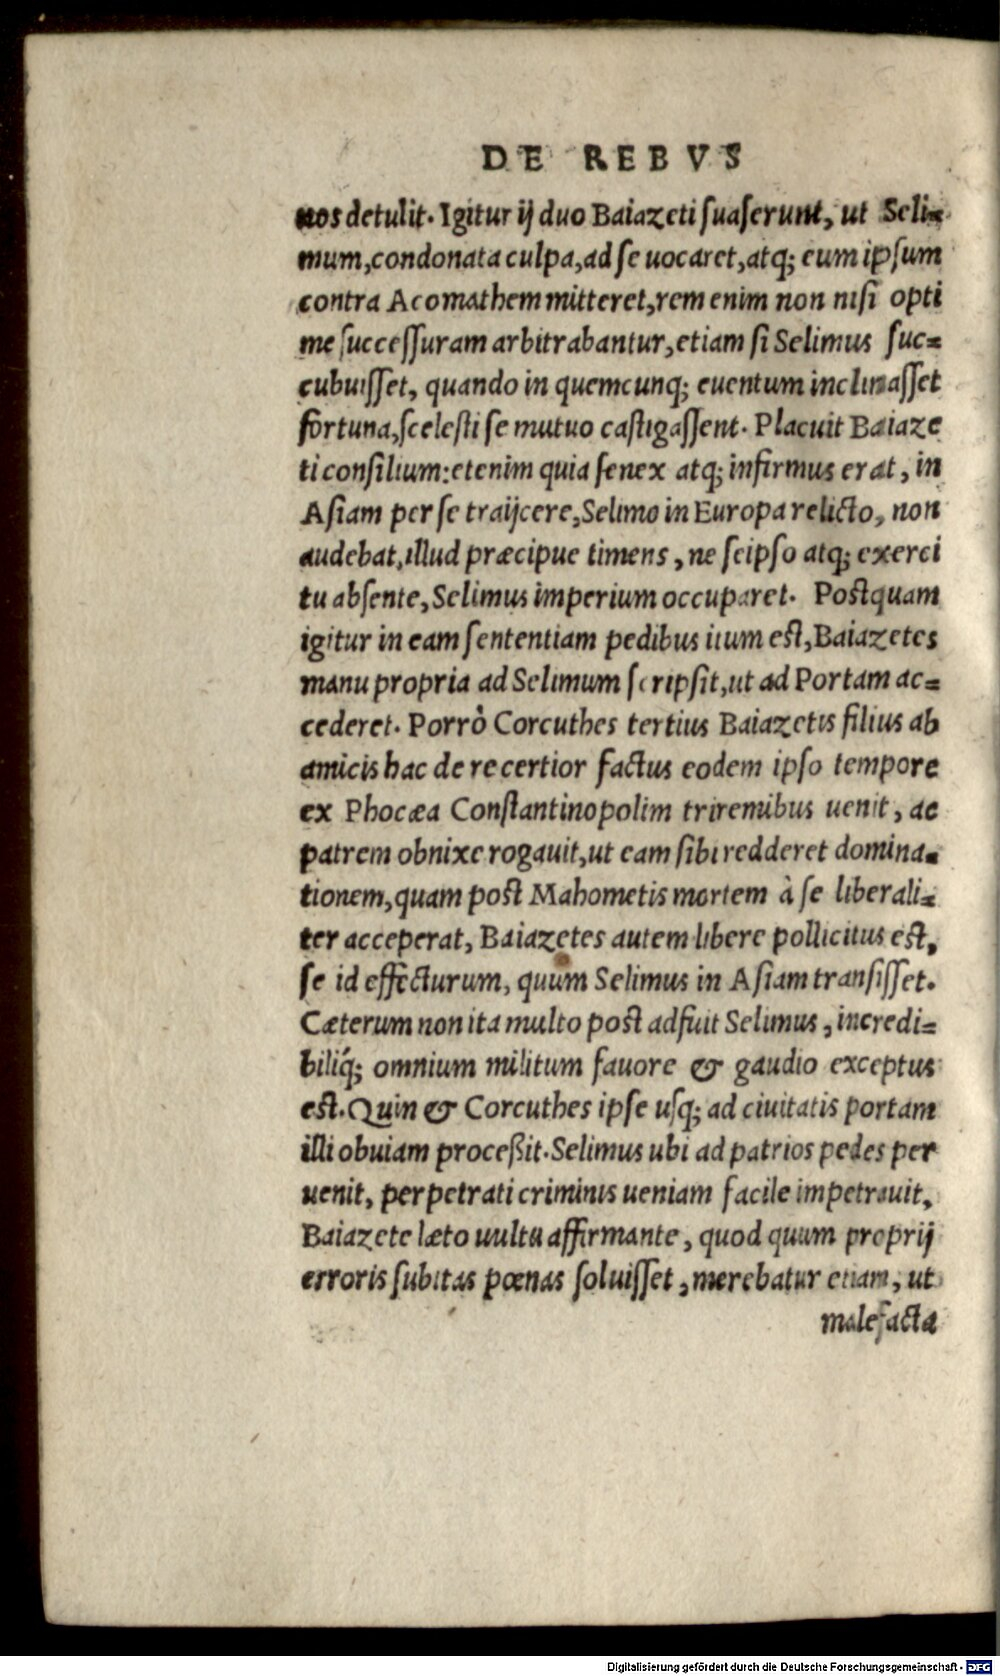 DE REBVS
nos detulit. Igitur ij duo Baiazeti suaserunt, ut Seli=
mum, condonata culpa, ad se uocaret, atq; eum ipsum
contra Acomathem mitteret, rem enim non nisi opti
me successuram arbitrabantur, etiam si Selimus suc=
cubuisset, quando in quemcunq; euentum inclinasset
fortuna, scelesti se mutuo castigassent. Placuit Baiaze
ti consilium: etenim quia senex atq; infirmus erat, in
Asiam per se traijcere, Selimo in Europa relicto, non
audebat, illud præcipue timens, ne seipso atq; exerci
tu absente, Selimus imperium occuparet. Postquam
igitur in eam sententiam pedibus itum est, Baiazetes
manu propria ad Selimum scripsit, ut ad Portam ac=
cederet. Porrò Corcuthes tertius Baiazetis filius ab
amicis hac de re certior factus eodem ipso tempore
ex Phocæa Constantinopolim triremibus uenit, ac
patrem obnixe rogauit, ut eam sibi redderet domina=
tionem, quam post Mahometis mortem à se liberali=
ter acceperat, Baiazetes autem libere pollicitus est,
se id effecturum, quum Selimus in Asiam transisset.
Cæterum non ita multo post adfuit Selimus, incredi=
biliq́; omnium militum fauore & gaudio exceptus
est. Quin & Corcuthes ipse usq; ad ciuitatis portam
illi obuiam proceßit. Selimus ubi ad patrios pedes per
uenit, perpetrati criminis ueniam facile impetrauit,
Baiazete læto uultu affirmante, quod quum proprij
erroris subitas pœnas soluisset, merebatur etiam, ut
malefacta
Digitalisierung gefördert durch die Deutsche Forschungsgemeinschaft - DFG